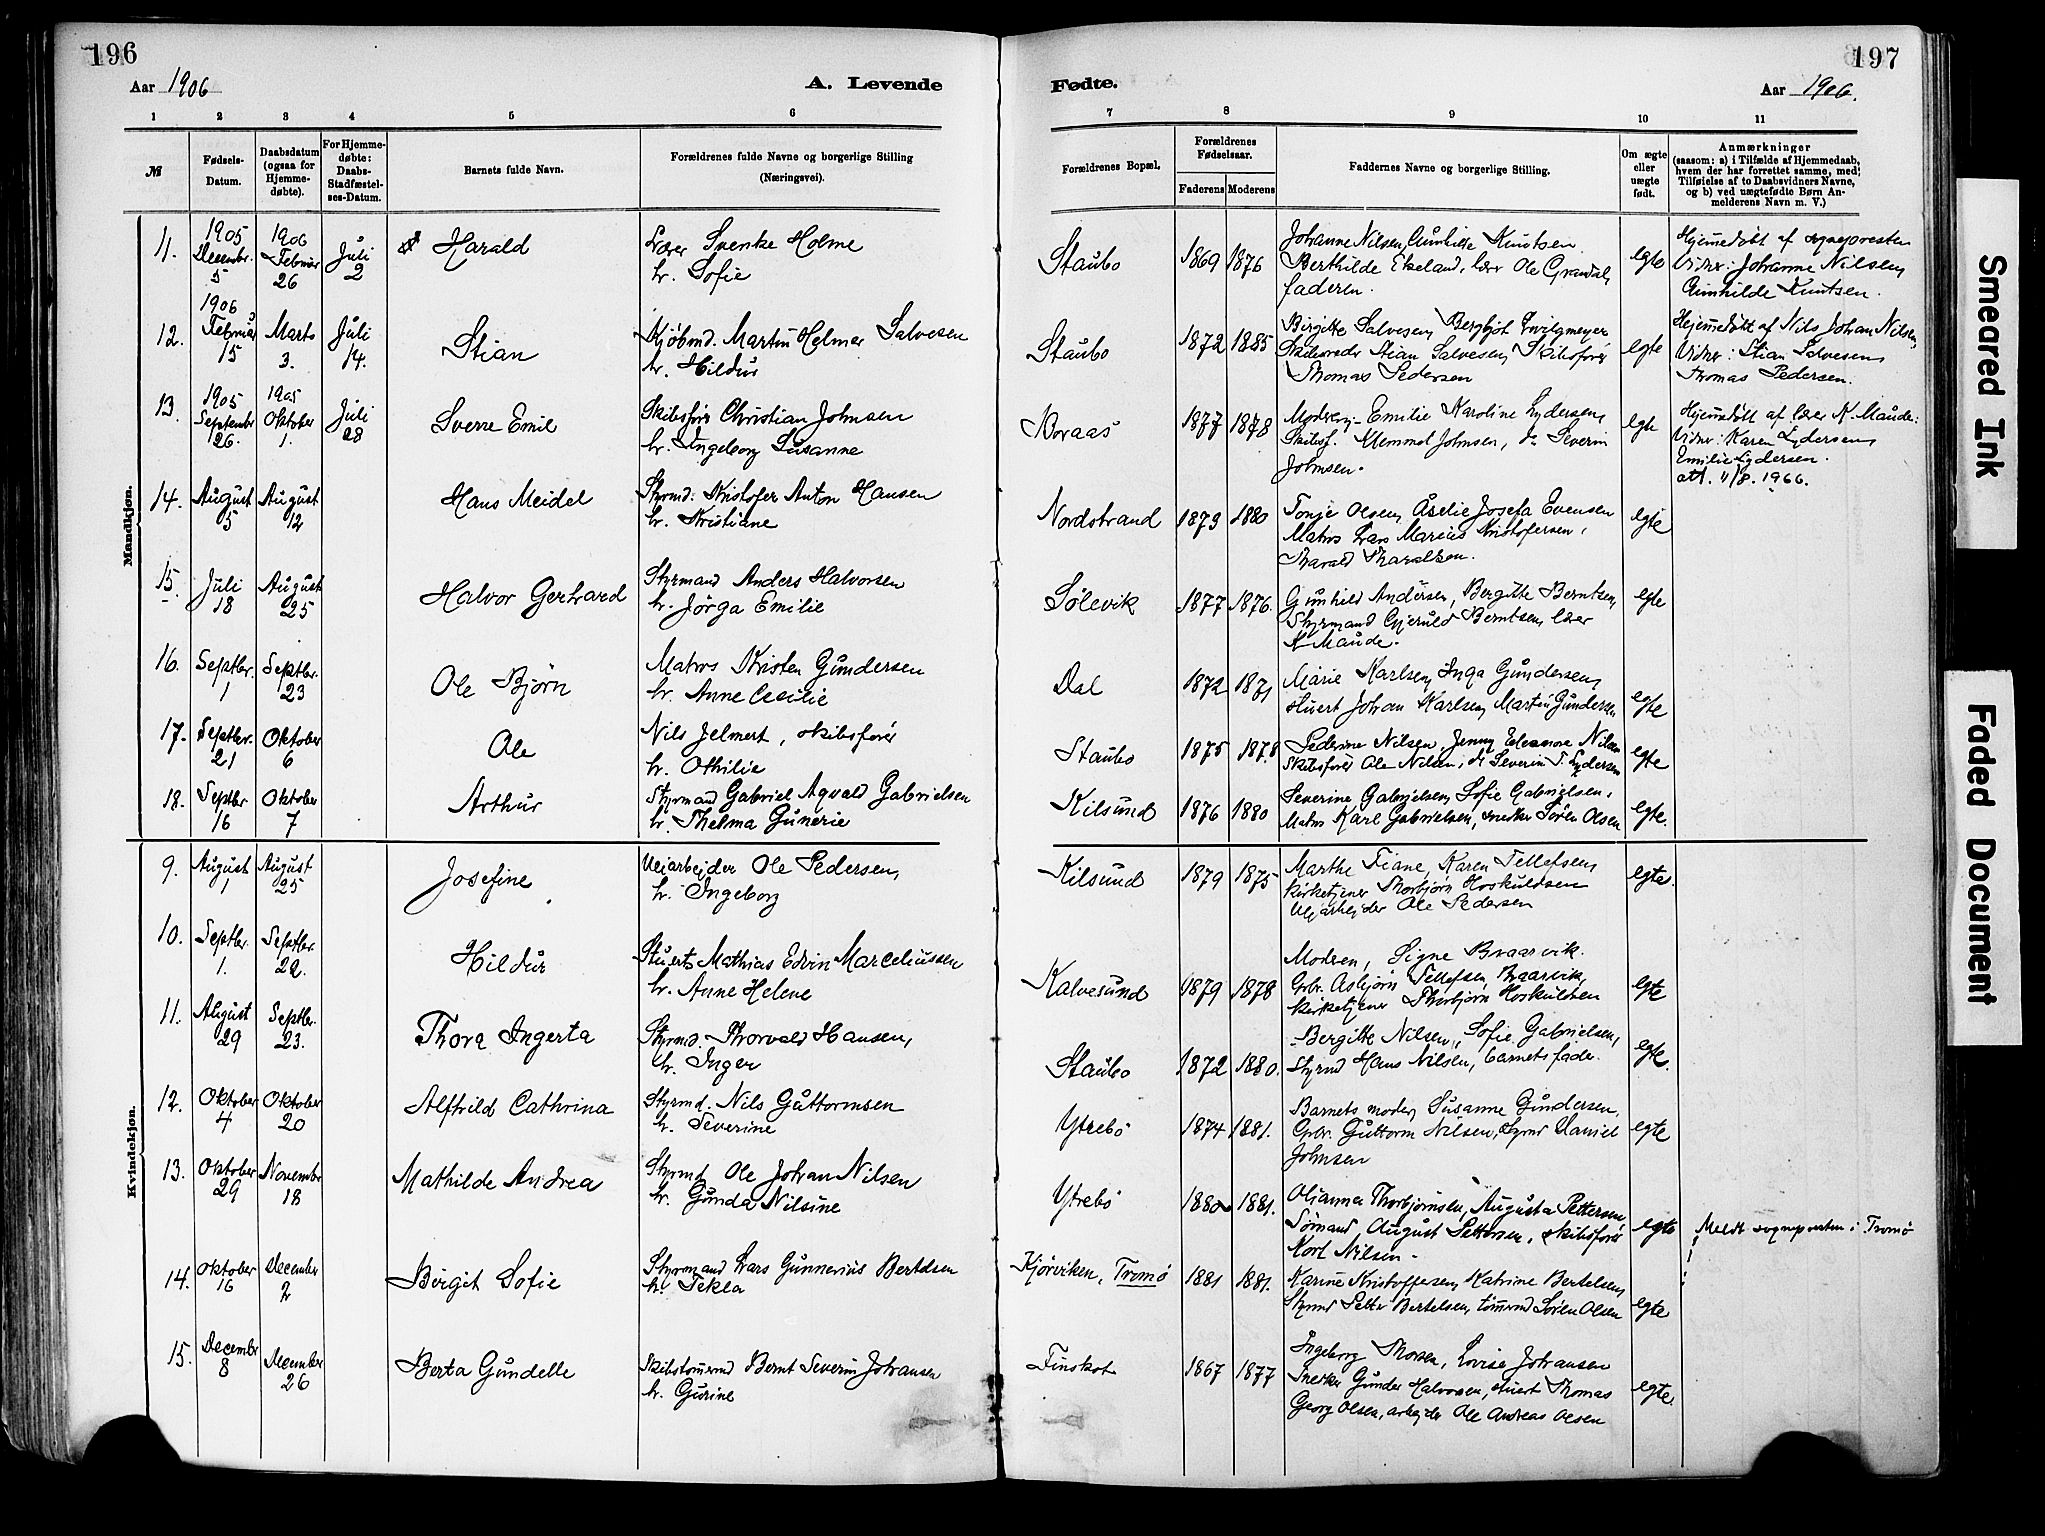 196
Aar 1906
A. Levende
1 2 3 4 5 6
№
Fødsels-Datum.
Daabsdatum (ogsaa for Hjemme-døbte).
For Hjemme-døbte: Daabs-Stadfæstel-ses-Datum.
Barnets fulde Navn.
Forældrenes fulde Navne og borgerlige Stilling (Næringsvei).
Mandkjøn.
11. 1905 Decembr. 5 1906 Februar 26 Juli 2 Harald Lærer Svenke Holme
hr. Sofie
12. 1906 Februar 15 Marts 3. Juli 14. Stian Kjøbmd. Martin Helmer Salvesen
hr. Hildur
13. 1905 Septembr 26. 1905 Oktober 1. Juli 28 Sverre Emil Skibsfører Christian Johnsen
hr. Ingeborg Susanne
14. August 5 August 12 Hans Meidel Styrmd. Kristofer Anton Hansen
hr. Kristiane
15. Juli 18 August 25 Halvor Gerhard Styrmand Anders Halvorsen
hr. Jörga Emilie
16. Septbr. 1 Septbr. 23 Ole Bjørn Matros Kristen Gundersen
hr. Anne Cecilie
17. Septbr. 21 Oktober 6 Ole Nils Jelmert, skibsfører
hr. Othilie
18. Septbr 16 Oktober 7 Arthur Styrmand Gabriel Aqvald Gabrielsen
hr. Thelma Gunerie
Kvindekjøn.
9. August 1 August 25 Josefine Veiarbejder Ole Pedersen,
hr. Ingeborg
10. Septbr. 1. Septbr. 22. Hildur Stuert Mathias Edvin Marceliussen
hr. Anne Helene
11. August 29 Septbr. 23. Thora Ingerta Styrmd. Thorvald Hansen,
hr. Inger
12. Oktober 4 Oktober 20 Alfhild Cathrina Styrmd. Nils Guttormsen
hr. Severine
13. Oktober 29 Novembr 18 Mathilde Andrea Styrmd Ole Johan Nilsen
hr. Gunda Nilsine
14. Oktober 16 December 2 Birgit Sofie Styrmand Lars Gunnerius Bertelsen
hr. Tekla
15. Decembr 8 December 26 Berta Gundelle Skibstømrmd Bernt Severin Johansen
hr. Gurine
197
Fødte.
Aar 1906.
7 8 9 10 11
Forældrenes Bopæl.
Forældrenes Fødselsaar.
Faderens Moderens
Faddernes Navne og borgerlige Stilling.
Om ægte eller uægte født.
Anmærkninger
(saasom: a) i Tilfælde af Hjemmedaab, hvem der har forrettet samme, med Tilføielse af to Daabsvidners Navne, og b) ved uægtefødte Børn Anmelderens Navn m. V.)
Staubo 1869 1876 Johanne Nilsen, Gunhilde Knutsen
Berthilde Ekeland, lærer Ole Grandal,
faderen. egte Hjemmedøbt af sognepresten
Vidner: Johanne Nilsen,
Gunhilde Knutsen.
Staubo 1872 1885 Birgitte Salvesen, Bergljot Qvilgmeyer
Skibsreder Stian Salvesen, Skibsfører
Thomas Pedersen egte Hejemmedøbt af Nils Johan Nilsen,
Vidner: Stian Salvesen,
Thomas Pedersen.
Boraas 1877 1878 Moderen, Emilie Karoline Lydersen,
Skibsf. Memmet Johnsen, do Severin
Johnsen. egte Hjemmedøbt af lærer K. Maude:
Vidner: Karen Lydersen,
Emilie Lydersen.
att. 11/8. 1966.
Nordstrand 1873 1880 Tonje Olsen, Åselie Josefa Evensen
Matros Lars Marius Kristofersen,
Harald Haraldsen. egte
Sølevik 1877 1876. Gunhild Andersen, Bergitte Berntsen,
Styrmand Gjeruld Berntsen, lærer
K Maude. egte
Dal 1872 1871 Marie Karlsen, Inga Gundersen,
stuert Johan Karlsen, Martin Gundersen egte
Staubo 1875 1878 Pederine Nilsen, Jenny Eleanore Nilsen
Skibsfører Ole Nilsen, do Severin T. Lydersen egte
Kilsund 1876 1880 Severine Gabrielsen, Sofie Gabrielsen,
Matros Karl Gabrielsen, snedker Søren Olsen egte.
Kilsund 1879 1875 Marthe Fiane, Karen Tellefsen,
Kirketjener Thorbjørn Hoskuldsen
Vejarbejder Ole Pedersen egte.
Kalvesund 1879 1878 Moderen, Signe Braarvik.
Grbr. Asbjørn Tellefsen, Braarvik,
Kirketjener Thorbjørn Hoskuldsen egte
Staubo 1872 1880. Bergitte Nilsen, Sofie Gabrielsen,
Styrmd Hans Nilsen, barnets fader. egte.
Ytrebö 1874 1881. Barnets moder, Susanne Gundersen,
Grbr. Guttorm Nilsen, Styrmd Daniel
Johnsen egte
Ytrebö 1880 1881. Olianna Thorbjørnsen, Augusta Pettersen,
Sømand August Pettersen, skibsfører
Karl Nilsen egte Meldt sognepresten i Tromø
Kjørviken, Tromö 1881 1881. Karine Kristoffersen, Katrine Bertelsen,
Styrmd Petter Bertelsen, tømrmd Søren Olsen egte
Finskot 1867 1877 Ingeborg Thorsen, Lovise Johansen
Snedker Gunder Halvorsen, stuert Thomas
Georg Olsen, arbejder Ole Andreas Olsen egte.
Smeared Ink
Faded Document